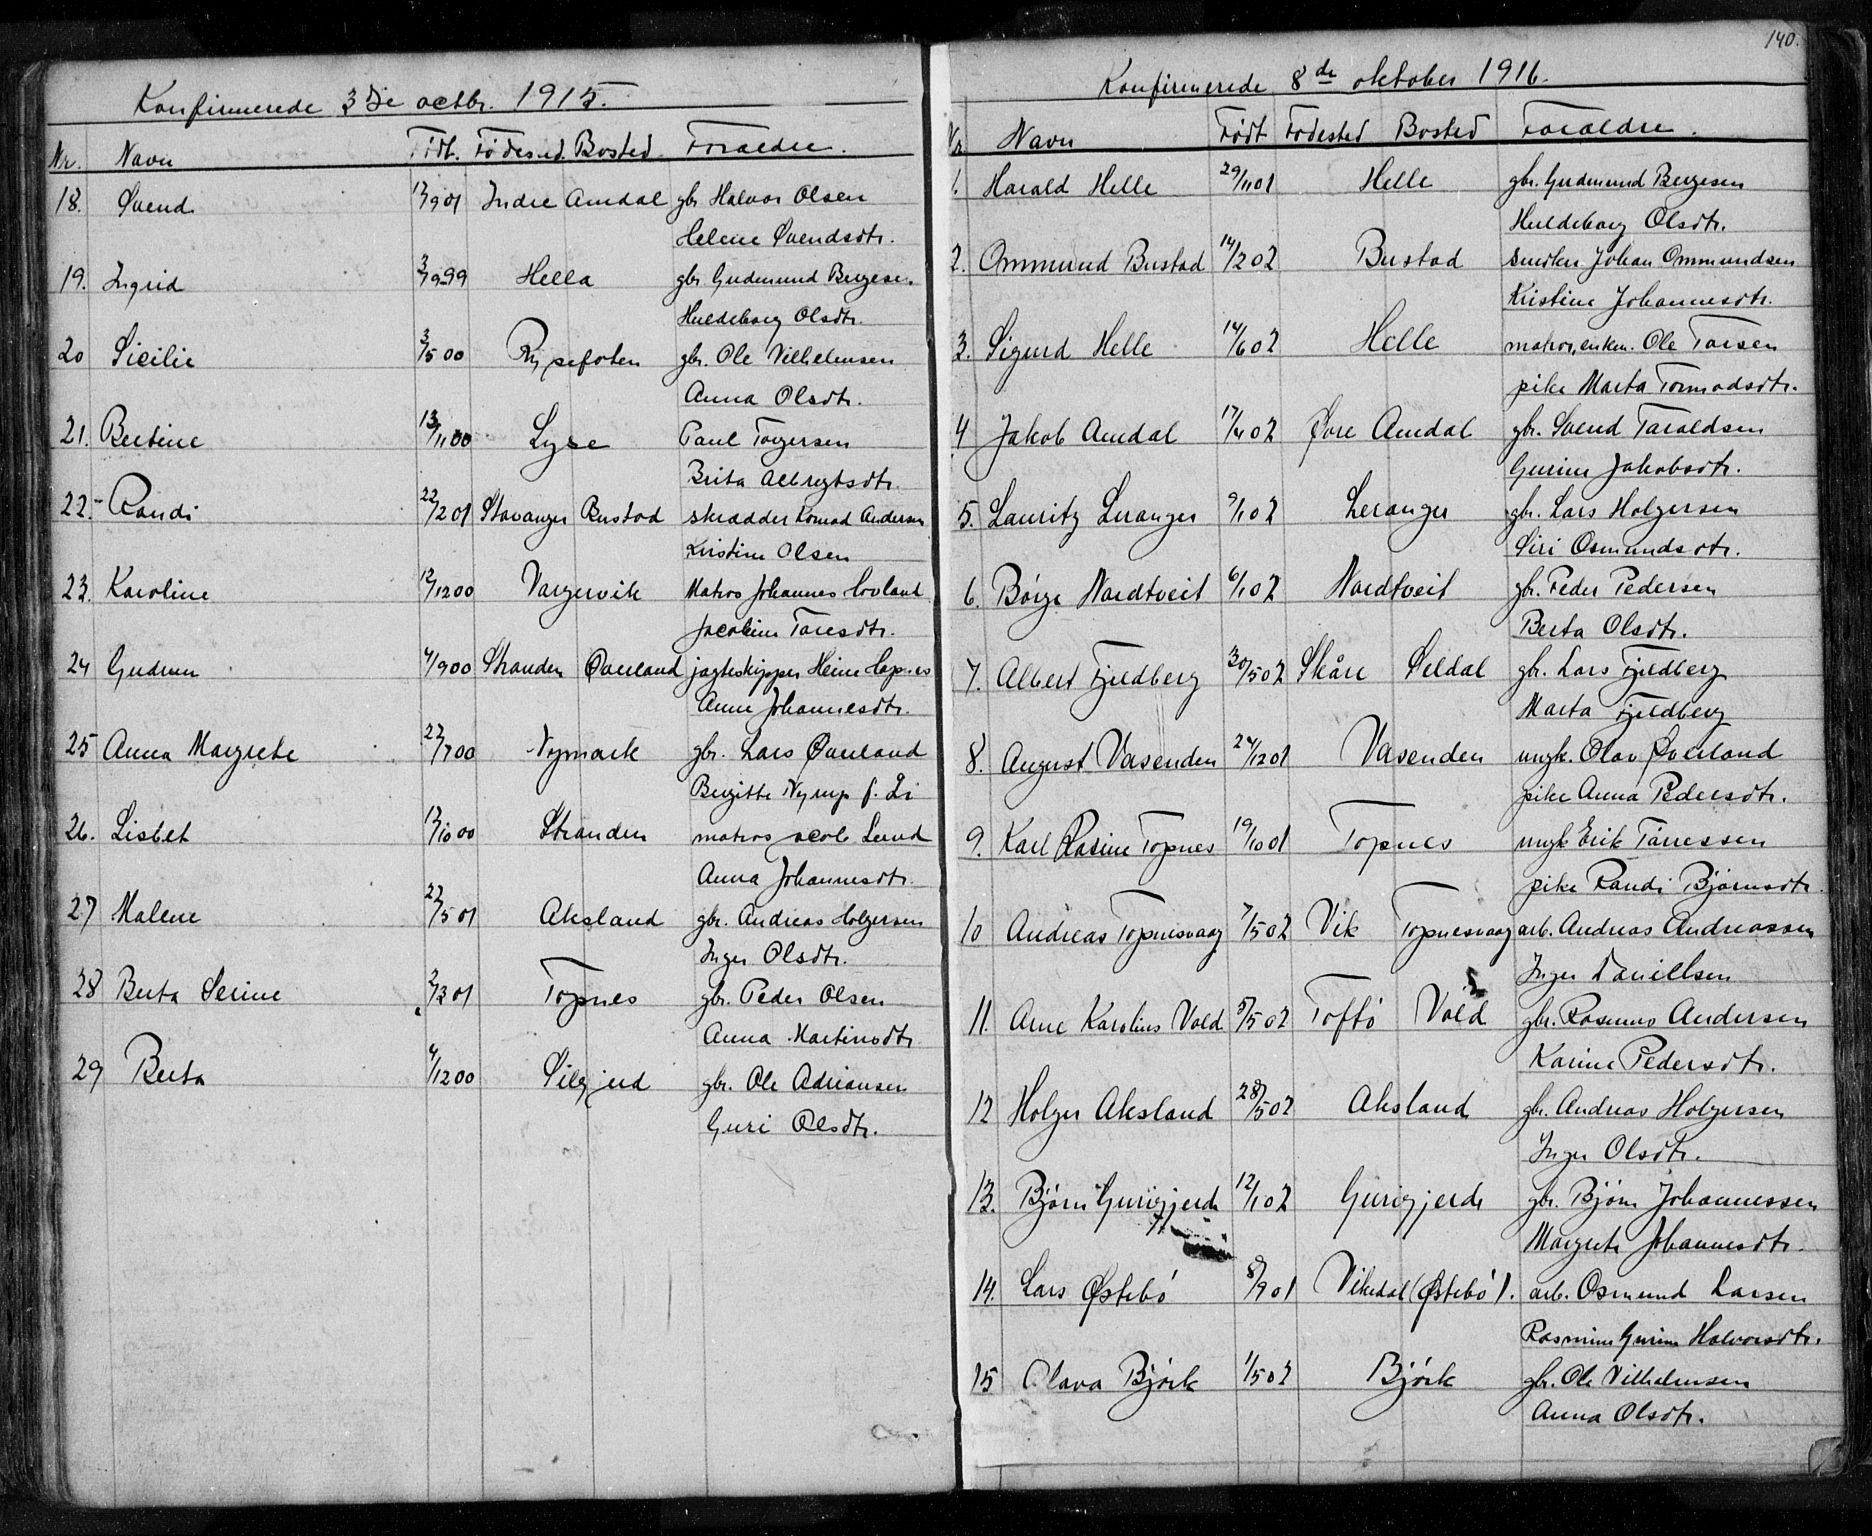 Konfirmerede 3die octbr. 1915.
Nr. Navn Født. Fødested Bosted Forældre.
18. Svend 12/9 01 Indre Amdal gbr Halvor Olsen
Helene Svendsdtr.
19. Ingrid 3/9 99 Hella gbr. Gudmund Bergesen.
Huldeborg Olsdtr.
20 Sicilie 3/5 00 gbr. Ole Vilhelmsen
Anna Olsdtr.
21. Bertine 13/11 00 Lyse Paul Torgersen
Brita Albregtsdtr.
22. Randi 22/2 01 Stavanger Bustad skrædder Konrad Andersen
Kristine Olsen
23. Karoline 12/12 00 Vargervik Matros Johannes Hovland
Jacobine Taresdtr.
24 Gudrun 4/9 00 Stranden Øverland jagteskipper Heine
Anne Johannesdtr.
25 Anna Margrete 22/7 00 Nymark gbr. Lars Øverland
Birgitte Nymp f. Li
26. Lisbet 12/10 00 Stranden matros Lund
Anna Johannesdtr.
27 Malene 22/5 01 Aksland gbr. Andreas Holgersen
Inger Olsdtr.
28 Berta Serine 2/3 01 Topnes gbr. Peder Olsen
Anna Martinsdtr.
29 Berta 4/12 00 gbr. Ole Adriansen
Guri Olsdtr.
140.
Konfirmerede 8de oktober 1916.
Nr Navn Født Fødested Bosted Forældre.
1. Harald Helle 29/11 01 Helle gbr. Gudmund Bergesen
Huldeborg Olsdtr.
2. Ommund Bustad 14/2 02 Bustad snedker Johan Ommundsen
Kristine Johannesdtr.
3. Sigurd Helle 14/6 02 Helle matros, enkem. Ole Tarsen
pike Marta Tormodsdtr.
4 Jakob Amdal 17/4 02 Øvre Amdal gbr. Svend Taraldsen
Gurine Jakobsdtr.
5. Lauritz Leranger 9/1 02 Leranger gbr. Lars Holgersen
Siri Osmundsdtr.
6. Børge Nordtveit 6/1 02 Nordtveit gbr. Peder Pedersen
Berta Olsdtr.
7. Albert Fjeldberg 30/5 02 Skåre Seldal gbr. Lars Fjeldberg
Marta Fjeldberg
8. August Vasenden 24/12 01 Vasenden ungk. Olav Øverland
pike Anna Pedersdtr.
9. Karl Rasine Topnes 19/10 01 Topnes ungk Erik Tårressen
pike Randi Bjørnsdtr.
10 Andreas Topnesvaag 7/5 02 Vik Topnesvaag arb. Andreas Andreassen
Inger Daniellsen
11. Arne Karolius Vold 5/5 02 Toftø Vold gbr. Rasmus Andersen
Karine Pedersdtr.
12 Holger Aksland 28/5 02 Aksland gbr. Andreas Holgersen
Inger Olsdtr.
13. Bjørn Gurigjerde 12/1 02 Gurigjerde gbr. Bjørn Johannessen
Margrete Johannesdtr.
14. Lars Østebø 8/9 01 Vikedal (Østebø). arb. Osmund Larsen
Rasmine Gurine Halvorsdtr.
15 Olava Bjørk 1/5 02 Bjørk gbr. Ole Vilhelmsen
Anna Olsdtr.